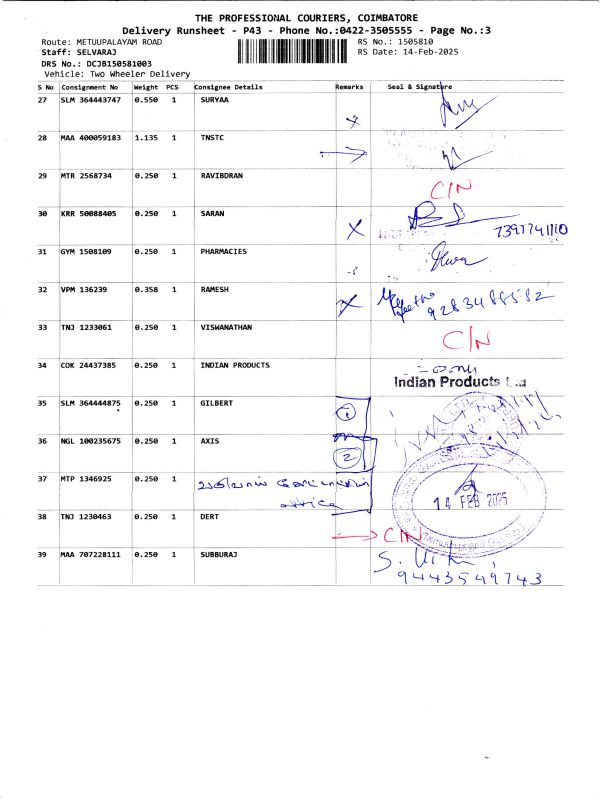 THE PROFESSIONAL COURIERS, COIMBATORE
Delivery Runsheet - P43 - Phone No.:0422-3505555 - Page No.:3
Route: METUUPALAYAM ROAD RS No.: 1505810
Staff: SELVARAJ RS Date: 14-Feb-2025
DRS No.: DCJB150581003
Vehicle: Two Wheeler Delivery
S No Consignment No Weight PCS Consignee Details Remarks Seal & Signature
27 SLM 364443747 0.550 1 SURYAA
28 MAA 400059183 1.135 1 TNSTC
29 MTR 2568734 0.250 1 RAVIBDRAN C/N
30 KRR 50088405 0.250 1 SARAN X 7397741110
31 GYM 1508109 0.250 1 PHARMACIES
32 VPM 136239 0.358 1 RAMESH X 9283488582
33 TNJ 1233061 0.250 1 VISWANATHAN C/N
34 COK 24437385 0.250 1 INDIAN PRODUCTS
Indian Products Ltd
35 SLM 364444875 0.250 1 GILBERT 1
36 NGL 100235675 0.250 1 AXIS 2
37 MTP 1346925 0.250 1
office
14 FEB 2025
38 TNJ 1230463 0.250 1 DERT C/N
39 MAA 707228111 0.250 1 SUBBURAJ
9443549743